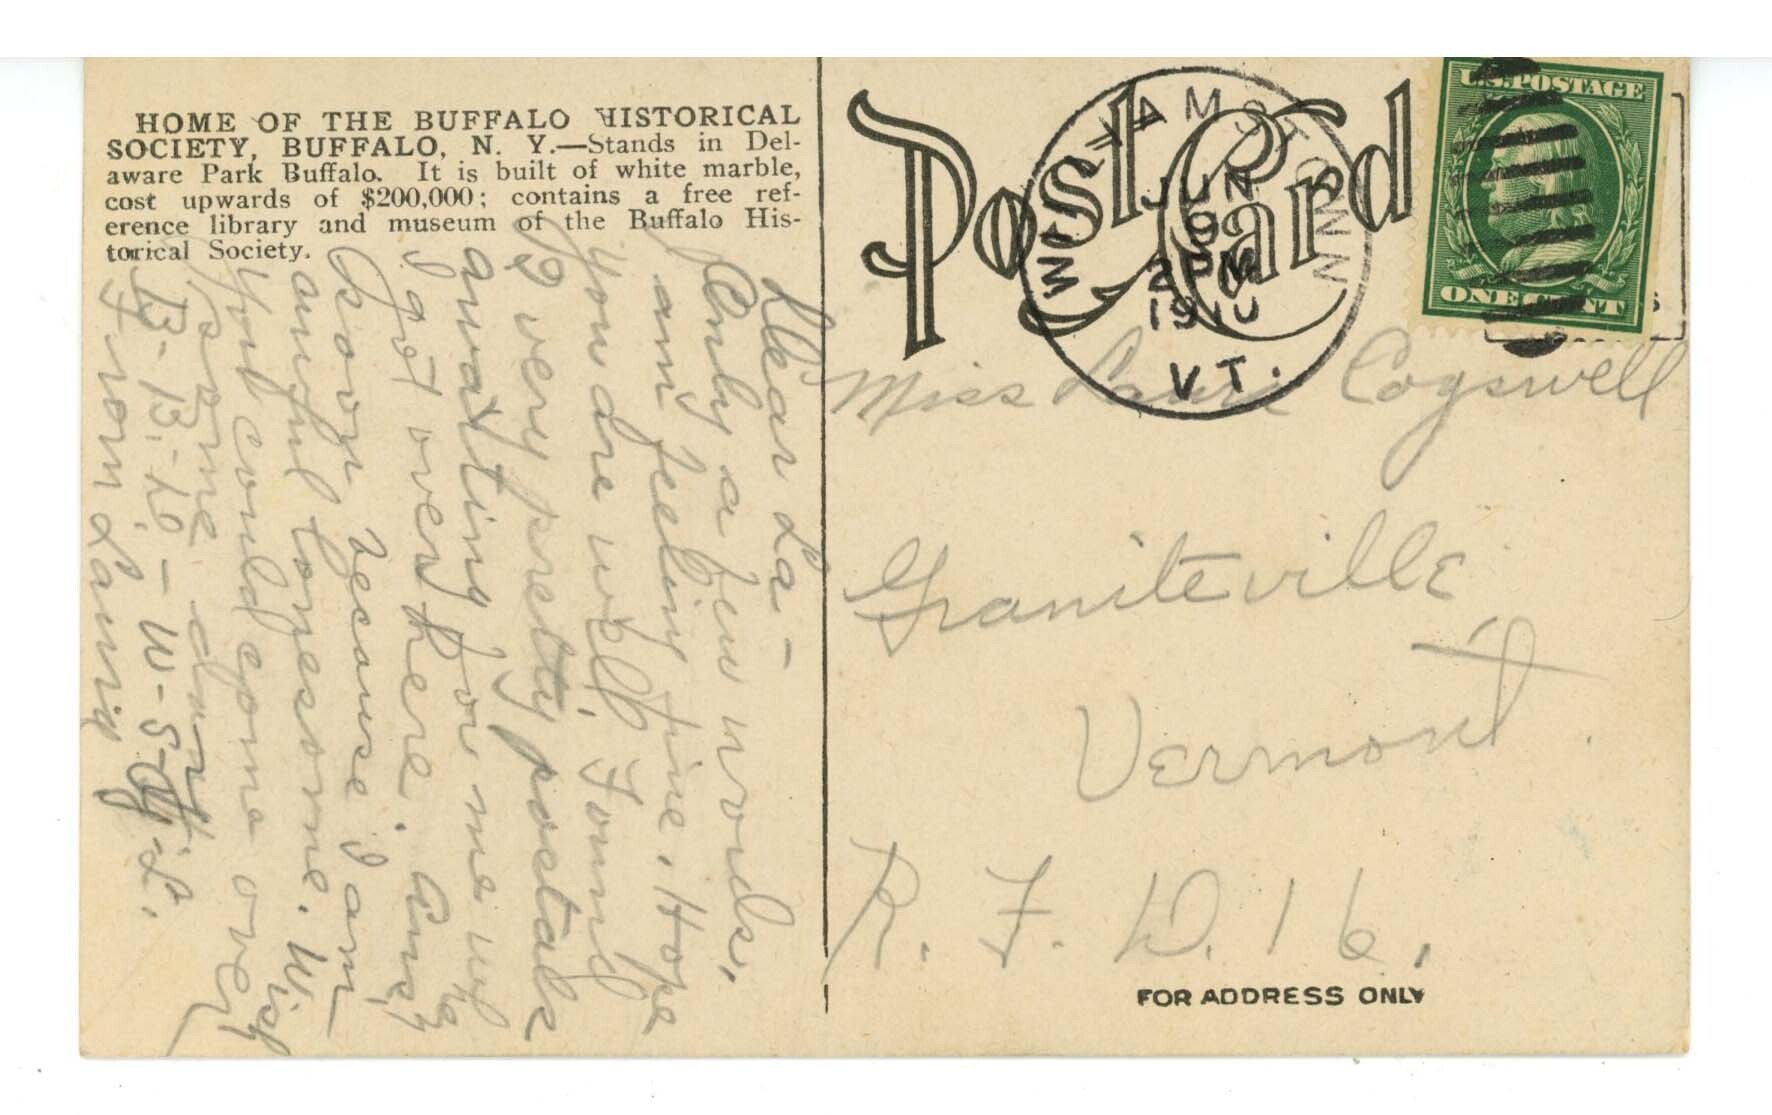 HOME OF THE BUFFALO HISTORICAL
SOCIETY, BUFFALO, N. Y.—Stands in Del-
aware Park Buffalo. It is built of white marble,
cost upwards of $200,000; contains a free ref-
erence library and museum of the Buffalo His-
torical Society.
Dear La-
Only a few words.
am feeling fine. Hope
you are well. Found
12 very pretty postals
awaiting for me when
I got over here. Ans,
soon because I am
awful lonesome. Wish
you could come over
some day
B-B-D-W-S-
From Laura
Post Card
WILLIAMSTOWN
JUN
9
2 PM
1910
VT.
U.S. POSTAGE
ONE CENT
Miss Laura Cogswell
Graniteville
Vermont.
R. F. D. 16.
FOR ADDRESS ONLY